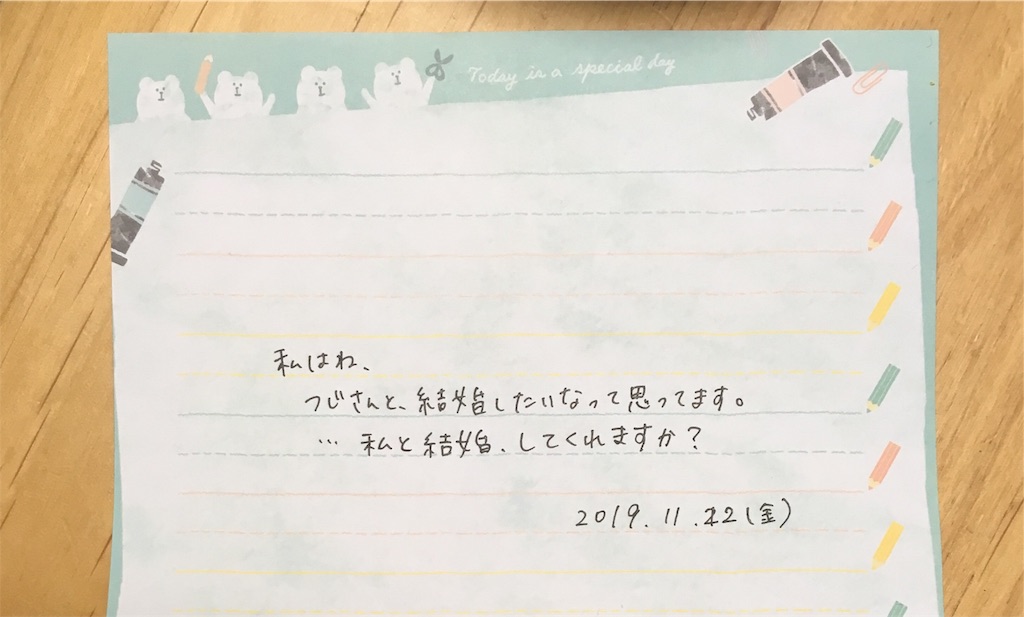 Today is a special day
私はね、
つじさんと、結婚したいなって思ってます。
… 私と結婚、してくれますか？
2019.11.22(金)